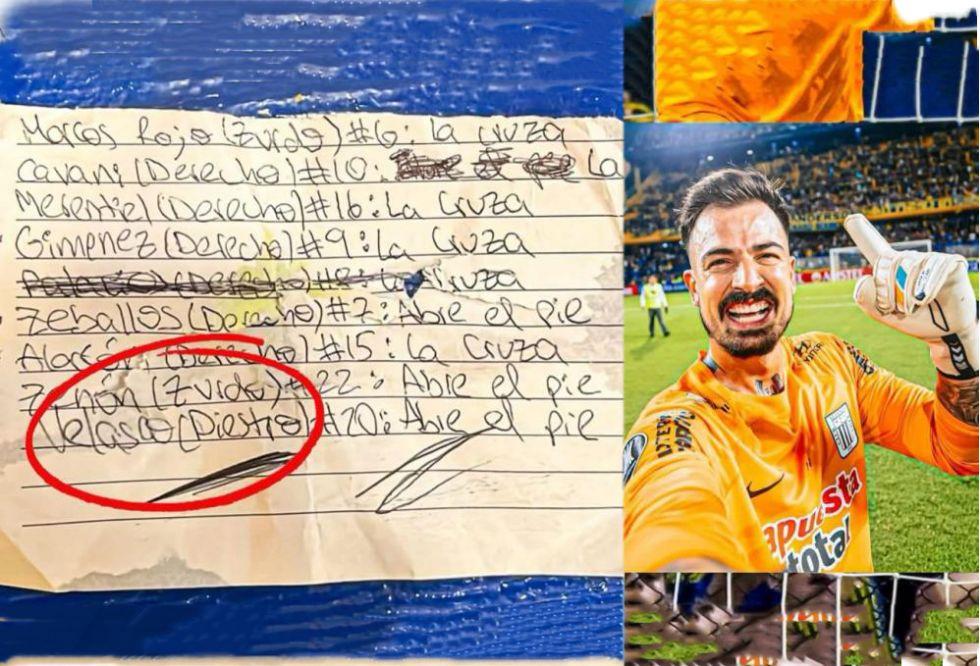 Marcos Rojo (Zurdo) #6: La cruza
Cavani (Derecho) #10: La
Merentiel (Derecho) #16: La Cruza
Gimenez (Derecho) #9: La Cruza
Palacio (Derecho) #8: La Cruza
Zeballos (Derecho) #7: Abre el pie
Alarcón (Derecho) #15: La Cruza
Zenón (Zurdo) #22: Abre el pie
Velasco (Diestro) #20: Abre el pie
apuesta
total